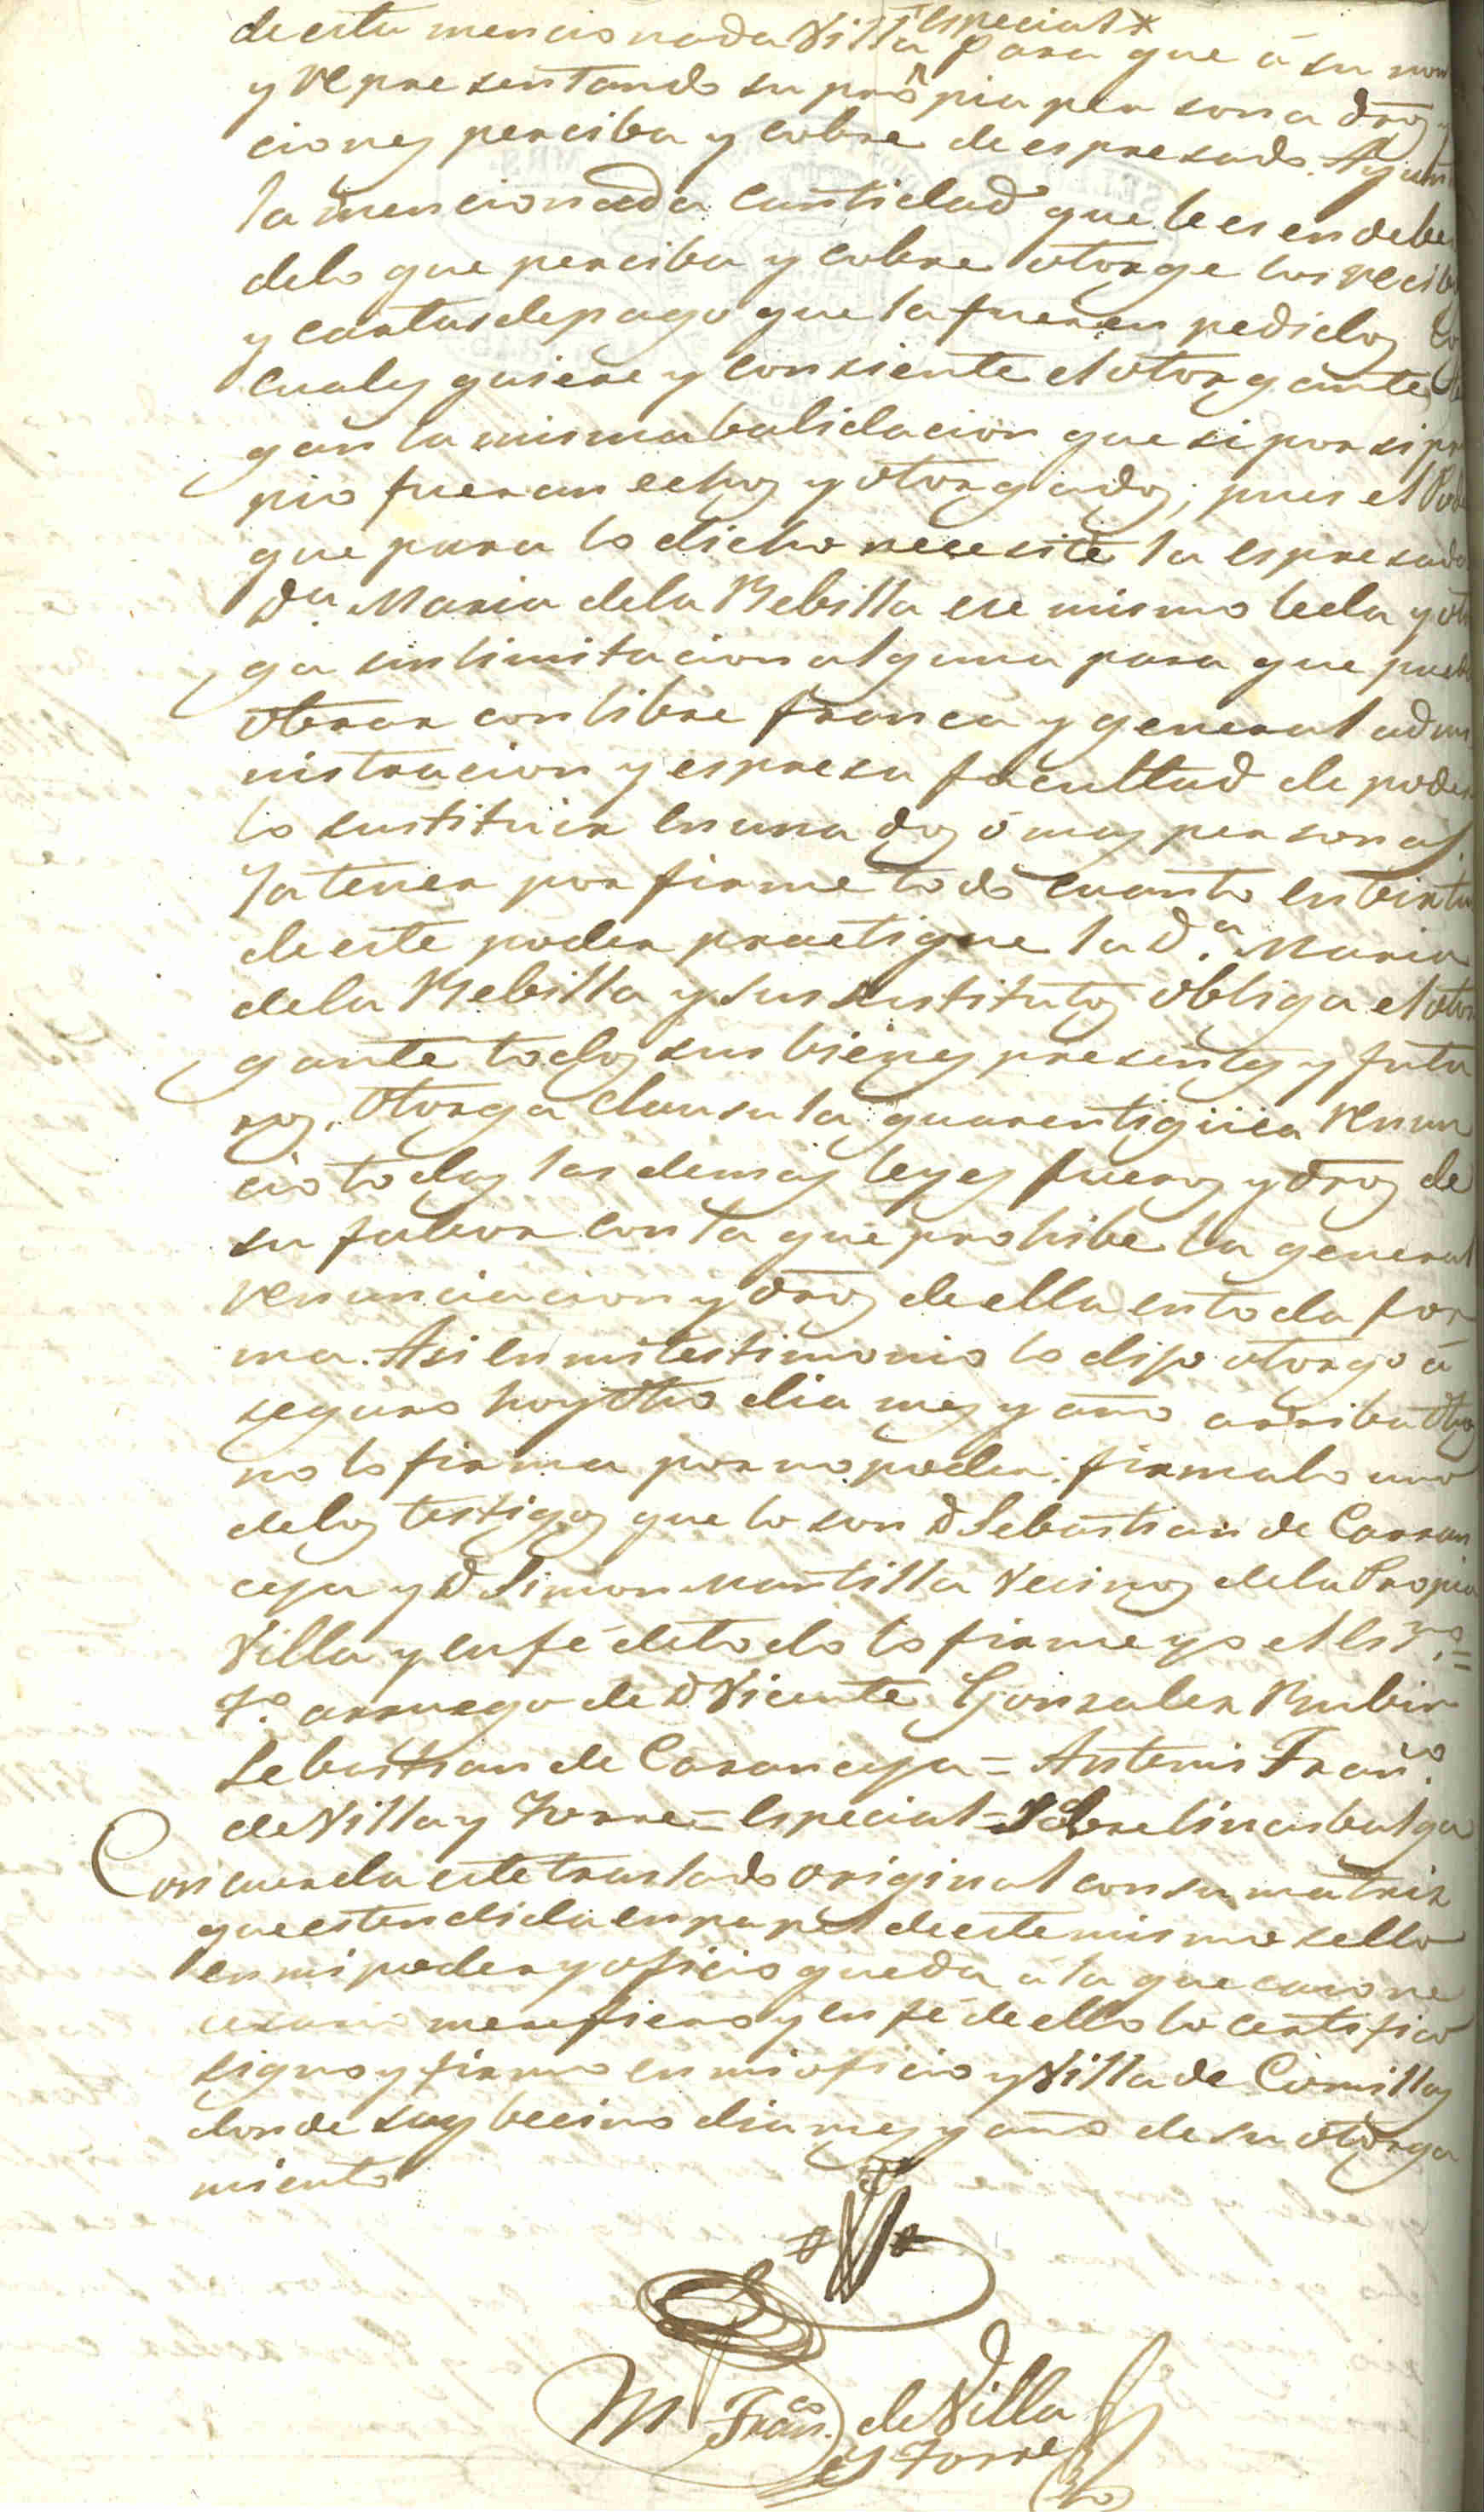 de esta mencionada Villa especial* para que á su nom
y representando su propia persona dros y
ciones perciba y cobre de espresado Ayun
la mencionada cantidad que le es en deber
delo que perciba y cobre otorge los recib
y cartas de pago que la fueren pedidos
cuales quiere y consiente el otorgante
gan la misma balidacion que si por si pr
pio fueran echos y otorgados; pues el Pod
que para lo dicho necesite la espresada
Dª Maria dela Rebilla ese mismo le da y oto
ga sin limitacion alguna para que pued
obrar con libre franca y general admi
nistracion y espresa facultad de poder
lo sustituir en una dos ó mas personas.
Ja tener por firme todo cuanto en birtu
de este poder practique la D.ª Maria
dela Rebilla y sus sustitutos obliga el otor
gante todos sus bienes presentes y futu
ros. Otorga clausula guarentigiica renun
ció todas las demas leyes fueros y dros de
su fabor con la que prohibe la general
renunciacion y dros de ella en toda for
ma. Asi en mi testimonio lo dijo otorgo á
seguro hoy dho dia mes y año arriba dhos
no lo firma por no poder: firmalo uno
delos testigos que lo son D Sebastian de Carran
ceja y D Simon Mantilla Vecinos dela Propia
Villa y en fé de todo lo firme yo el Esno.=
Tº. arruego de D Vicente Gonzalez Rubin
Sebastian de Caranceja = Antemi Franº.
de Villa y Torre = Especial = Sobrelineas balga
Concuerda este traslado original con su matriz
que estendida en papel de este mismo sello
en mi poder y oficio queda á la que caso ne
cesario me refiero y en fé de ello lo certifico
signo y firmo en mi oficio y Villa de Comillas
donde soy becino dia mes y año de su otorga
miento
Franco. de Villa
y Torre